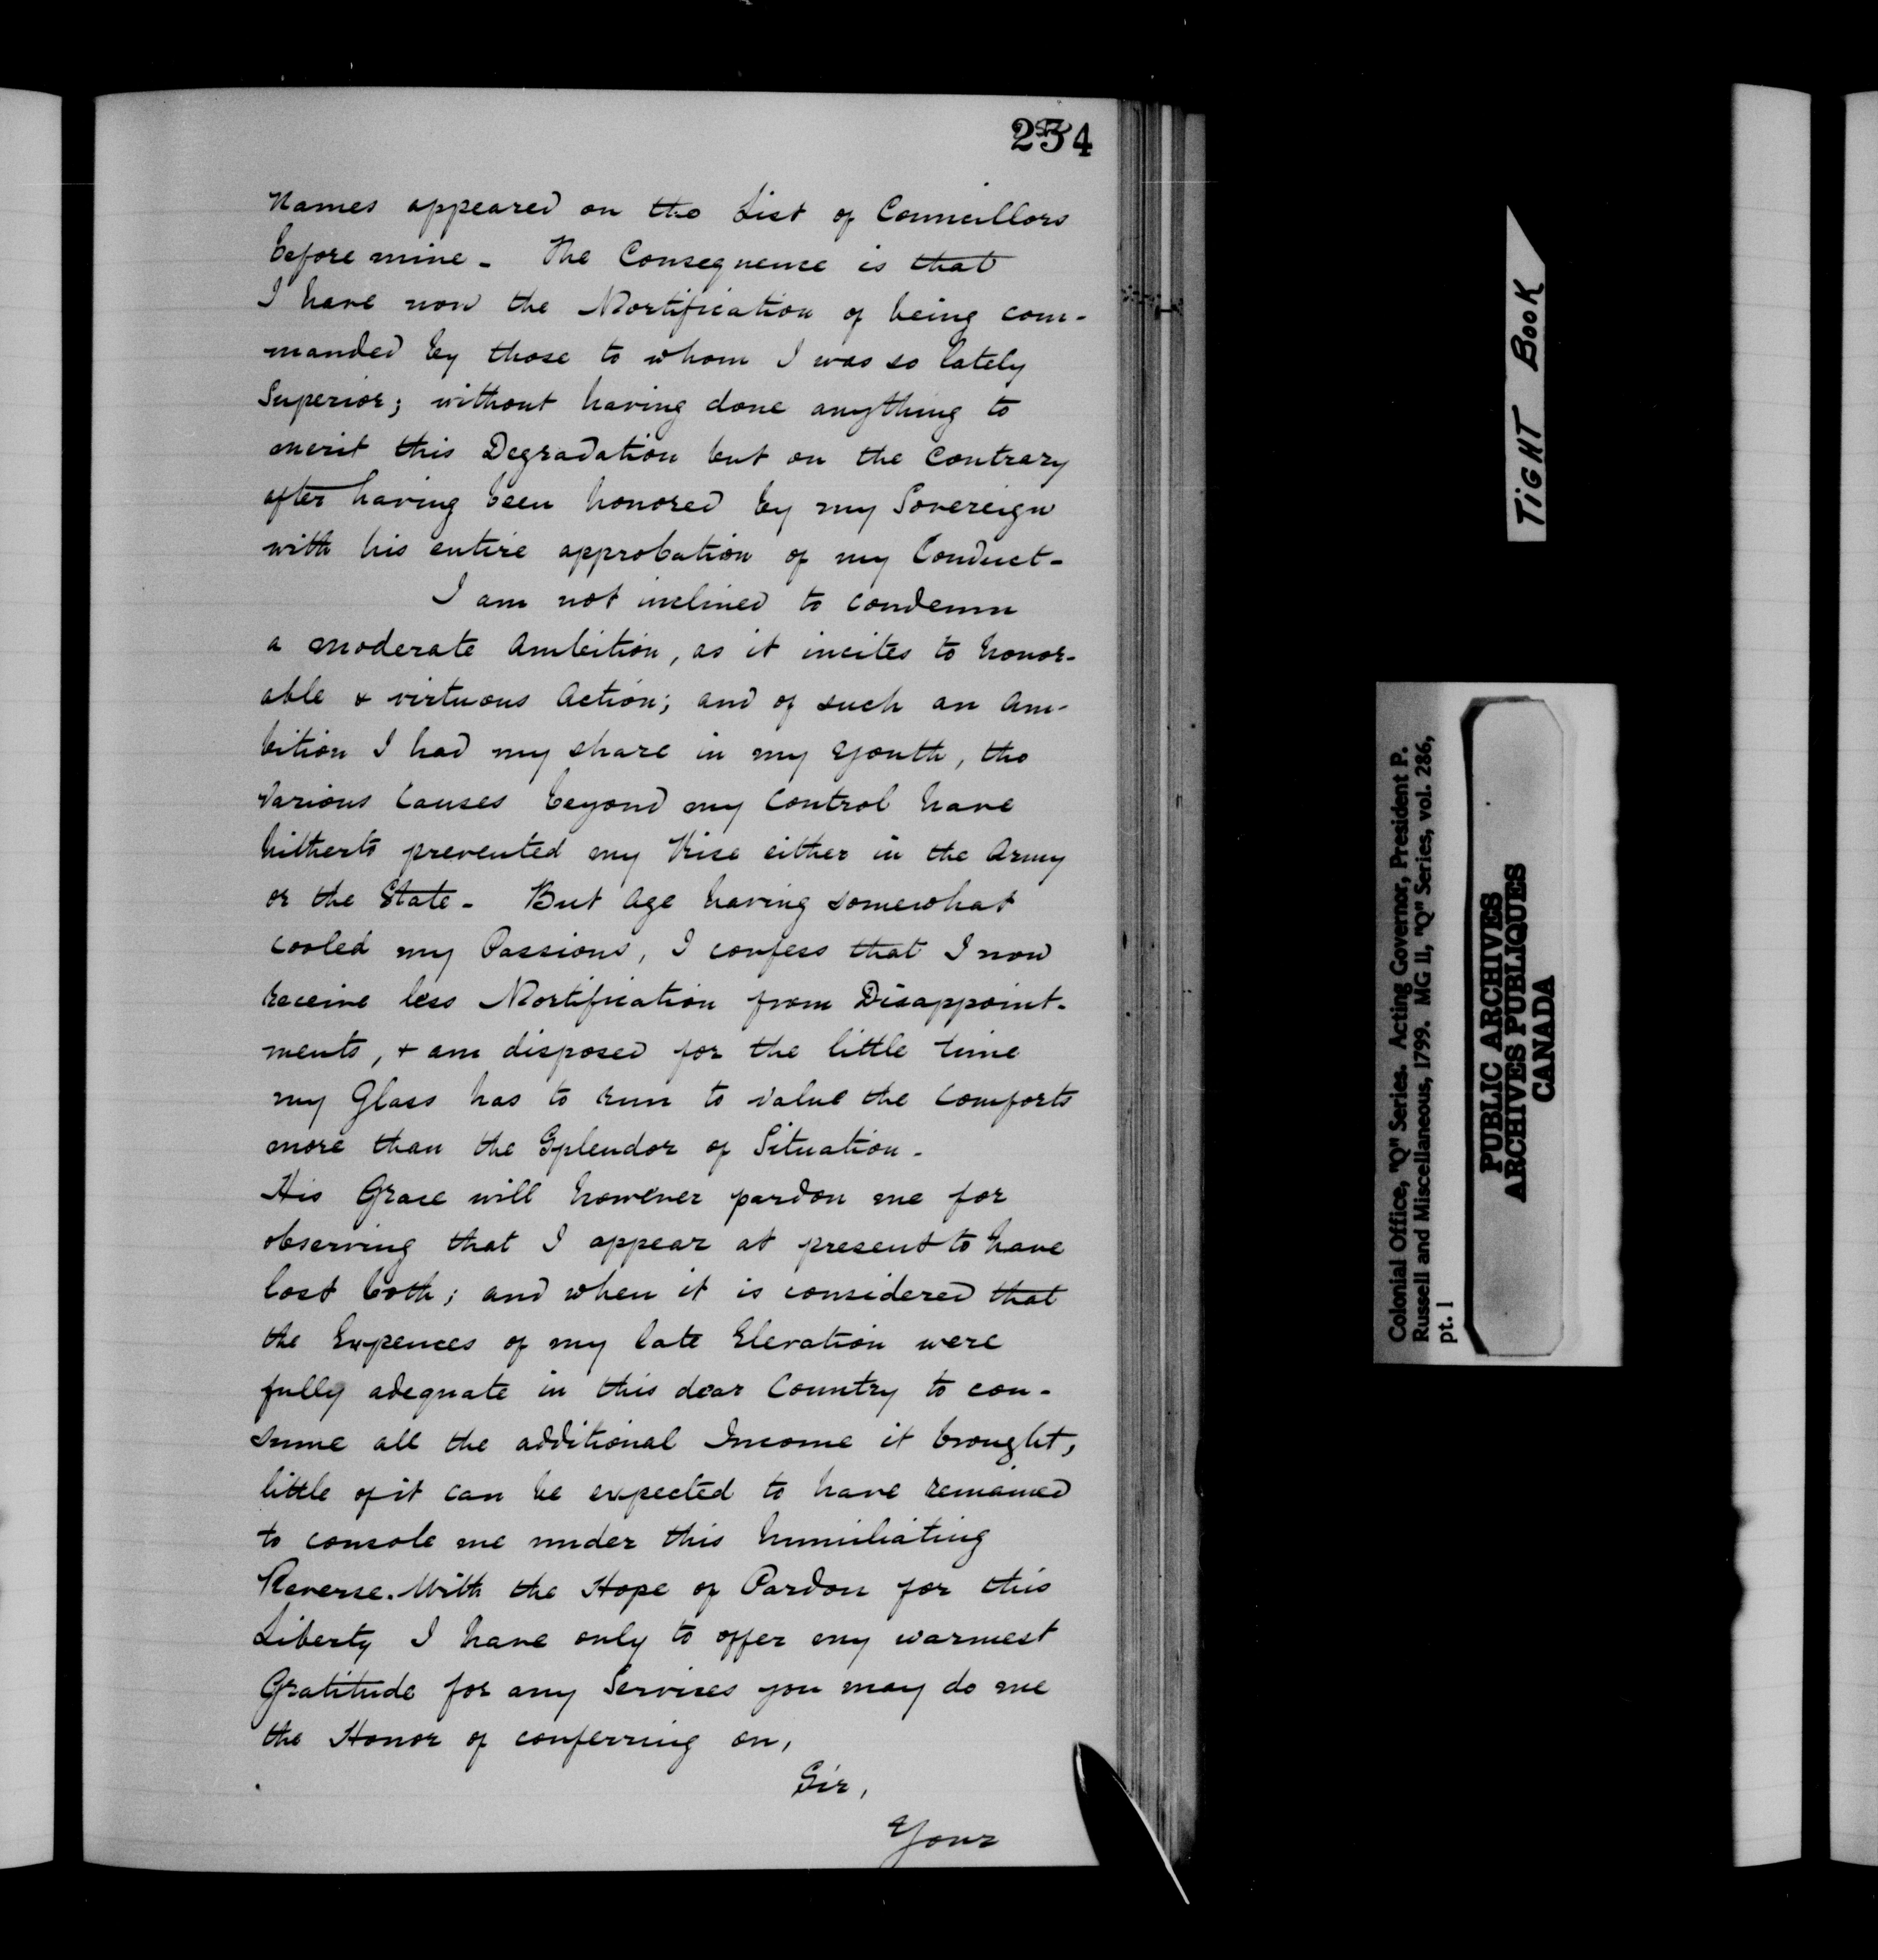 234
Names appeared on the List of Councillors
before mine - The Consequence is that
I have now the Mortification of being com-
manded by those to whom I was so lately
Superior; without having done anything to
merit this Degradation but on the Contrary
after having been honored by my Sovereign
with his entire approbation of my Conduct -
I am not inclined to condemn
a moderate Ambition, as it incites to honor-
able & virtuous Action; and of such an Am-
bition I had my share in my Youth, tho
various Causes beyond my Control have
hitherto prevented my Rise either in the Army
or the State - But Age having somewhat
cooled my Passions, I confess that I now
receive less Mortification from Disappoint-
ments, & am disposed for the little time
my Glass has to run to value the Comforts
more than the Splendor of Situation -
His Grace will however pardon me for
observing that I appear at present to have
lost both; and when it is considered that
the Expences of my late Elevation were
fully adequate in this dear Country to con-
sume all the additional Income it brought,
little of it can be expected to have remained
to console me under this humiliating
Reverse. With the Hope of Pardon for this
Liberty I have only to offer my warmest
Gratitude for any Services you may do me
the Honor of conferring on,
Sir,
Your
TIGHT BOOK
Colonial Office, "Q" Series. Acting Governor, President P.
Russell and Miscellaneous, 1799. MG 11, "Q" Series, vol. 286,
pt. 1
PUBLIC ARCHIVES
ARCHIVES PUBLIQUES
CANADA